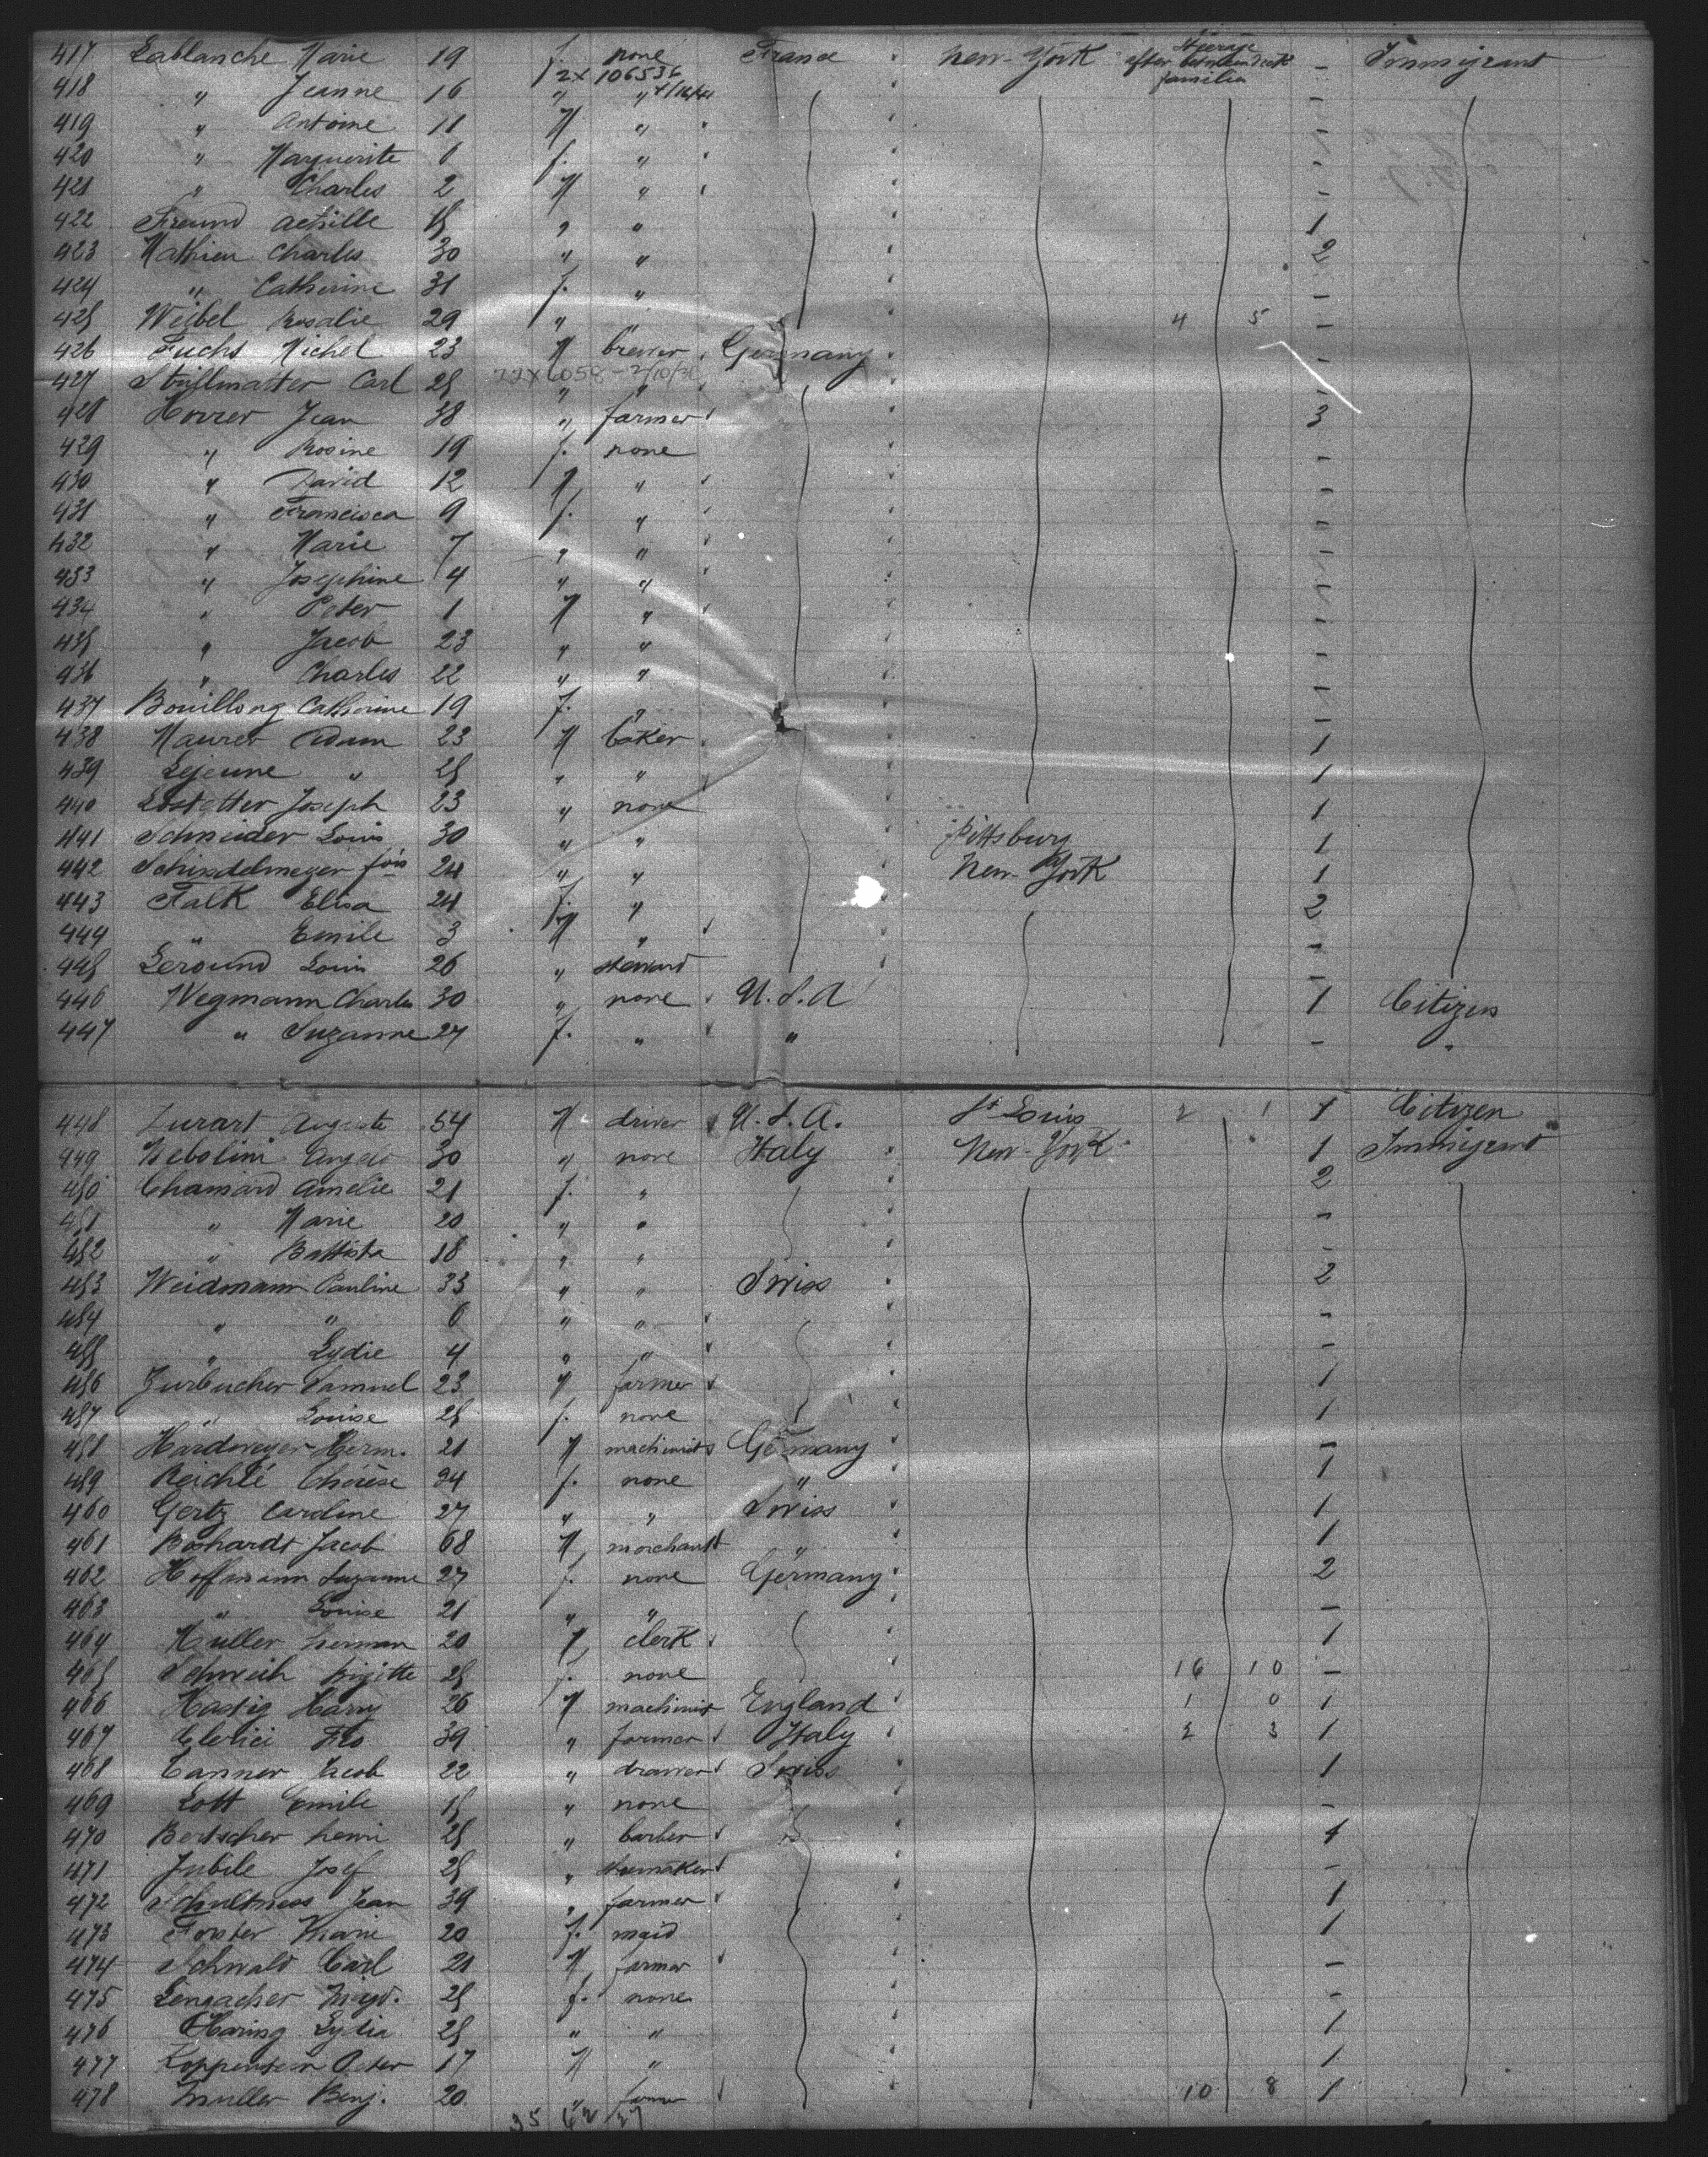 417 Lablanche Marie 19 f. none France New-York Steerage after betweendeck familia - Immigrant
2x 106536
418 " Jeanne 16 " " -
419 " Antoine 11 M " -
420 " Marguerite 6 f. " -
421 " Charles 2 M " -
422 Freund Achille 18 " " 1
423 Mathieu Charles 30 " " 2
424 " Catherine 31 f. " -
425 Weibel Rosalie 29 " " 4 5 -
426 Fuchs Michel 23 M brewer Germany -
427 Strittmatter Carl 25 " " -
428 Horrer Jean 38 " farmer 3
429 " Rosine 19 f. none -
430 " David 12 M " -
431 " Francisca 9 f. " -
432 " Marie 7 " " -
433 " Josephine 4 " " -
434 " Peter 1 M " -
435 " Jacob 23 " " -
436 " Charles 22 " " -
437 Bouillong Catherine 19 f. " -
438 Maurer Adam 23 M baker 1
439 Lejeune " 25 " " 1
440 Lostetter Joseph 23 " none 1
441 Schneider Louis 30 " " Pittsburg 1
442 Schindelmeyer fois 24 " " New-York 1
443 Falk Elisa 24 f. " 2
444 " Emile 3 M " -
445 Leround Louis 26 " steward -
446 Wegmann Charles 30 " none U.S.A 1 Citizen
447 " Suzanne 27 f. " " - "
448 Lurart Auguste 54 M driver U.S.A. St Louis 2 1 1 Citizen
449 Nebolini Angelo 30 " none Italy New-York 1 Immigrant
450 Chamard Amelie 21 f. " 2
451 " Marie 20 " " -
452 " Battista 18 " " -
453 Weidmann Pauline 33 " " Swiss 2
454 " " 6 " " -
455 " Lydie 4 " " -
456 Zurbucher Samuel 23 M farmer 1
457 " Louise 25 f. none 1
458 Hardmeyer Herm. 21 M machinist Germany -
459 Reichlé Thérèse 24 f. none " 1
460 Gertz Caroline 27 " " Swiss 1
461 Boshardt Jacob 68 M merchant " 1
462 Hoffmann Suzanne 27 f. none Germany 2
463 " Louise 21 " " -
464 Muller Herman 20 M clerk 1
465 Schweih Brigitte 25 f. none 16 10 -
466 Hastig Harry 26 M machinist England 1 0 1
467 Clerici Fco 39 " farmer Italy 2 3 1
468 Tanner Jacob 22 " drawer Swiss 1
469 Lott Emile 18 " none -
470 Bertscher henri 25 " barber 1
471 Jubile Josef 25 " shumaker -
472 Schultness Jean 39 " farmer 1
473 Forster Marie 20 f. maid 1
474 Schwald Carl 21 M farmer -
475 Lengacher Magd. 25 f. none -
476 Haring Lydia 25 " " 1
477 Koppenstein Peter 17 M " 1
478 Muller Benj. 20 " farmer 10 8 1
35 62 27